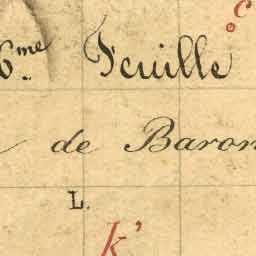 c
6.me Feuille
de Baron
L.
k'